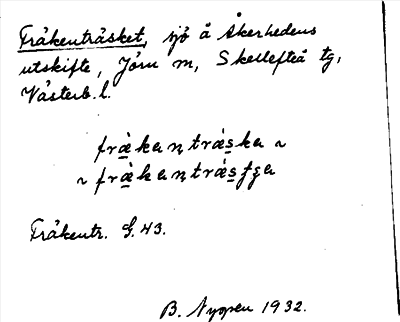 Fräkenträsket, sjö å Åkerhedens
utskifte, Jörn sn, Skellefteå tg,
Västerb. l.
fræ̀kantrǽska ~
~ fræ̀kantrǽsʒa
Fräkentr. G. 43.
B. Nygren 1932.